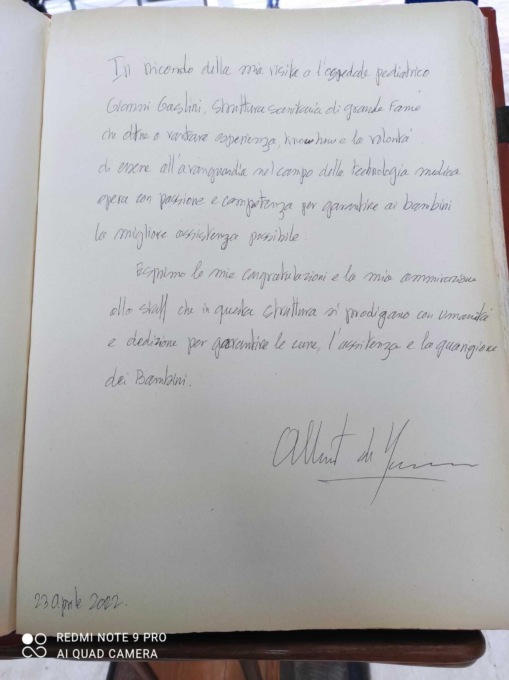 In ricordo della mia visita a l'ospedale pediatrico
Gianni Gaslini, struttura sanitaria di grande Fama
che oltre a vantare esperienza, know how e la volontà
di essere all'avanguardia nel campo della technologia medica
opera con passione e competenza per garantire ai bambini
la migliore assistenza possibile.
Esprimo le mie congratulazioni e la mia ammirazione
allo staff che in questa struttura si prodigano con umanità
e dedizione per garantire le cure, l'assitenza e la guarigione
dei Bambini.
Albert de
23 Aprile 2022.
REDMI NOTE 9 PRO
AI QUAD CAMERA